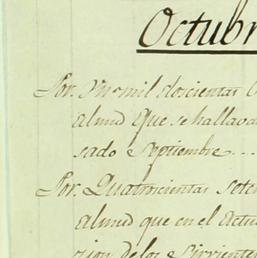 Octubr
Por. Un mil doscientas
almud que se hallava
sado e Septiembre...
Por. Quatrocientas sete
almud que en el actu
cion de los e Sirviente